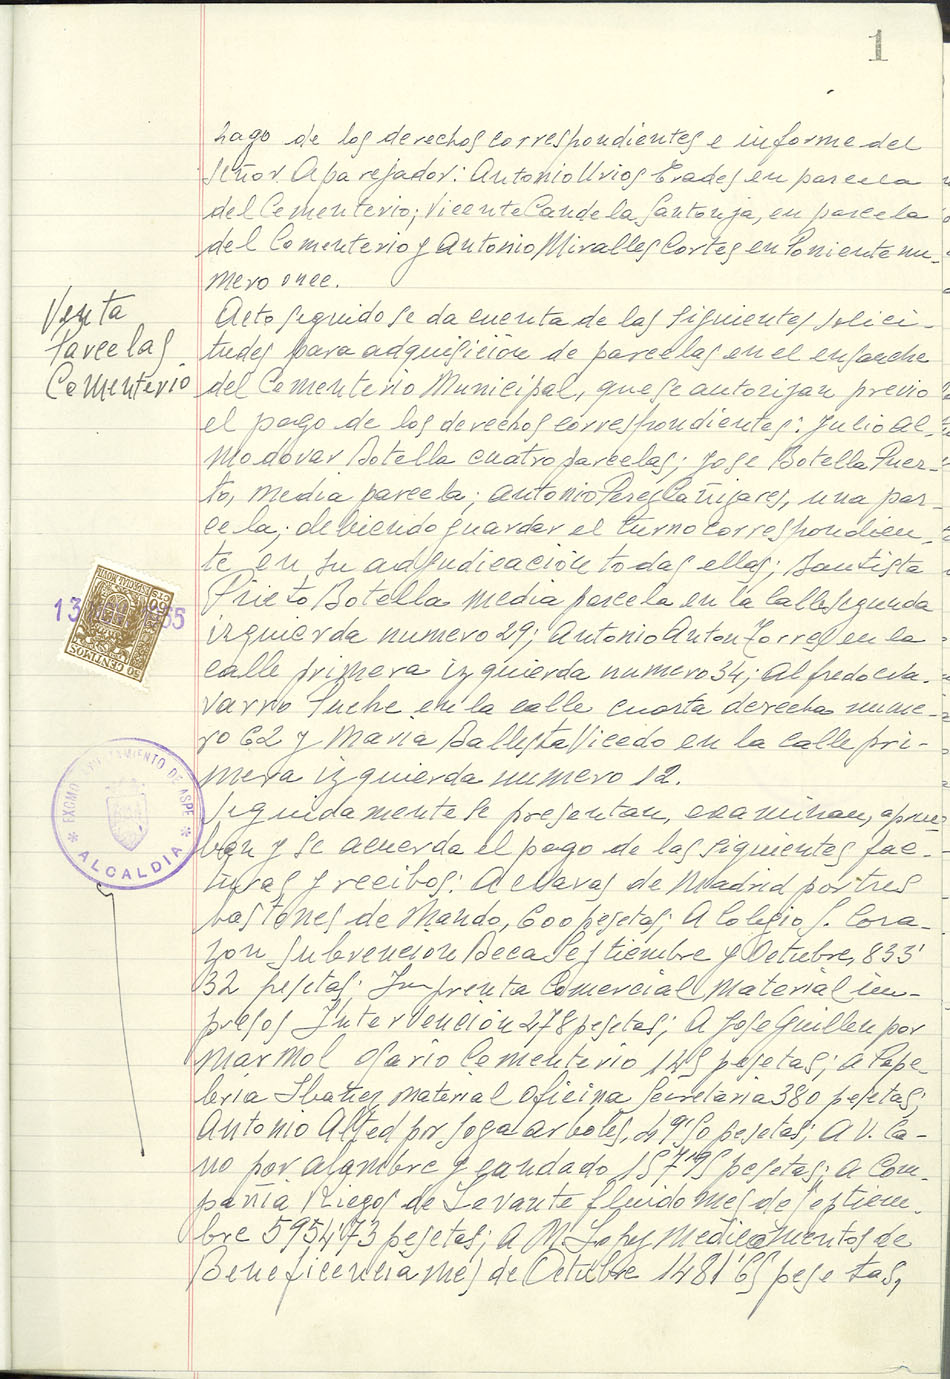 1
hago de los derechos correspondientes e informe del
Señor Aparejador: Antonio Urios Erades en parcela
del Cementerio; Vicente Candela Santonja, en parcela
del Cementerio y Antonio Miralles Cortes en Poniente nu-
mero once.
Venta
Parcelas
Cementerio
Acto seguido se da cuenta de las siguientes solici-
tudes para adquisición de parcelas en el ensanche
del Cementerio Municipal, que se autorizan previo
el pago de los derechos correspondientes: Julio Al-
modovar Botella cuatro parcelas; Jose Botella Puer-
to, media parcela; Antonio Perez Cañizares, una par-
cela; debiendo guardar el turno correspondien-
te en su adjudicación todas ellas; Bautista
Prieto Botella media parcela en la calle segunda
izquierda numero 29; Antonio Anton Torres en la
calle primera izquierda numero 34; Alfredo Na-
varro Puche en la calle cuarta derecha nume-
ro 62 y Maria Ballesta Vicedo en la calle pri-
mera izquierda numero 12.
Seguidamente se presentan, examinan, aprue-
ban y se acuerda el pago de las siguientes fac-
turas y recibos: A de Madrid por tres
bastones de Mando, 600 pesetas; A Colegio S. Cora-
zon Subvención Beca Septiembre y Octubre, 833'
32 pesetas; Imprenta Comercial Material im-
presos Intervención 278 pesetas; A Jose Guillen por
marmol osario Cementerio 145 pesetas; a Pape-
leria Ibañez material oficina Secretaria 380 pesetas;
Antonio Alted por soga arboles, 49'50 pesetas; A V. Ca-
no por alambre y candado 157'95 pesetas; a Com-
pañia Riegos de Levante fluido mes de septiem-
bre 5954'73 pesetas; A M. Lopez medicamentos de
Beneficencia mes de Octubre 1481'65 pesetas,
50 CENTIMOS
ESPECIAL MOVIL
50 CTS
EXCMO. AYUNTAMIENTO DE ASPE
* ALCALDIA *